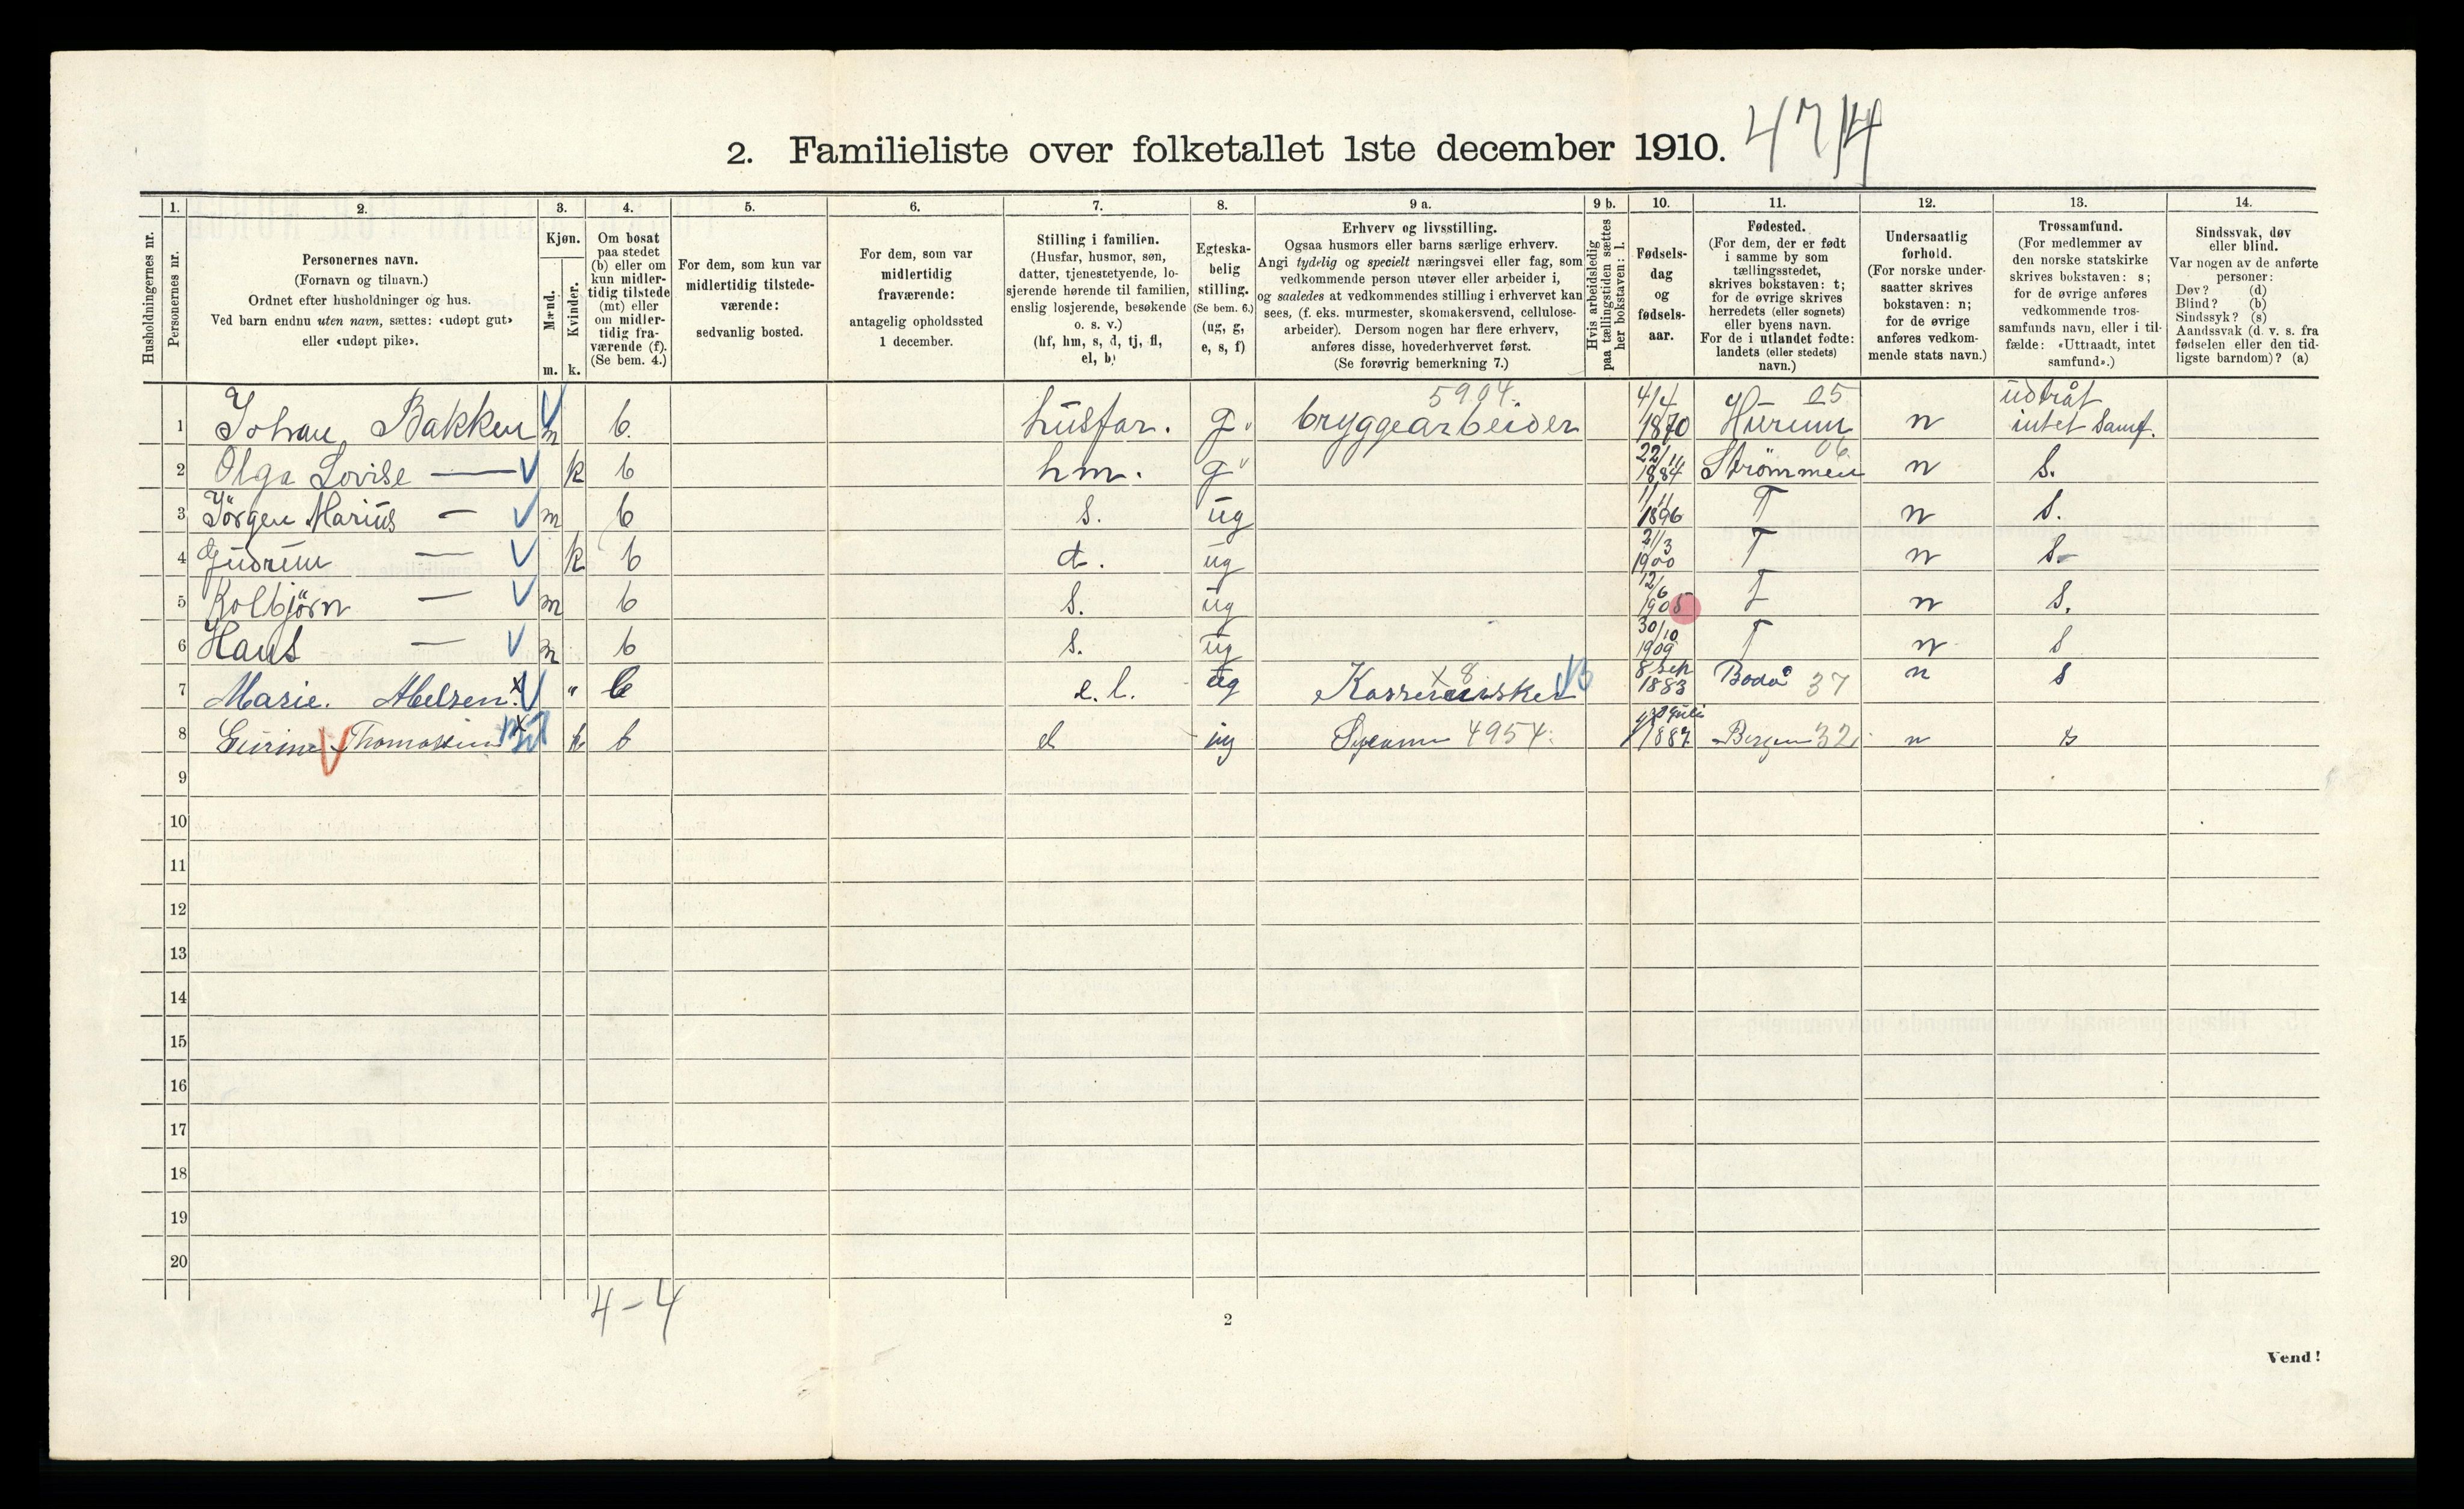 2. Familieliste over folketallet 1ste december 1910. 4714
1. 2. 3. 4. 5. 6. 7. 8. 9 a. 9 b. 10. 11. 12. 13. 14.
Husholdningernes nr.
Personernes nr.
Personernes navn.
(Fornavn og tilnavn.)
Ordnet efter husholdninger og hus.
Ved barn endnu uten navn, sættes: «udøpt gut»
eller «udøpt pike».
Kjøn.
Mænd.
Kvinder.
m. k.
Om bosat
paa stedet
(b) eller om
kun midler-
tidig tilstede
(mt) eller
om midler-
tidig fra-
værende (f).
(Se bem. 4.)
For dem, som kun var
midlertidig tilstede-
værende:
sedvanlig bosted.
For dem, som var
midlertidig
fraværende:
antagelig opholdssted
1 december.
Stilling i familien.
(Husfar, husmor, søn,
datter, tjenestetyende, lo-
sjerende hørende til familien,
enslig losjerende, besøkende
o. s. v.)
(hf, hm, s, d, tj, fl,
el, b)
Egteska-
belig
stilling.
(Se bem. 6.)
(ug, g,
e, s, f)
Erhverv og livsstilling.
Ogsaa husmors eller barns særlige erhverv.
Angi tydelig og specielt næringsvei eller fag, som
vedkommende person utøver eller arbeider i,
og saaledes at vedkommendes stilling i erhvervet kan
sees, (f. eks. murmester, skomakersvend, cellulose-
arbeider). Dersom nogen har flere erhverv,
anføres disse, hovederhvervet først.
(Se forøvrig bemerkning 7.)
Hvis arbeidsledig
paa tællingstiden sættes
her bokstaven: l.
Fødsels-
dag
og
fødsels-
aar.
Fødested.
(For dem, der er født
i samme by som
tællingsstedet,
skrives bokstaven: t;
for de øvrige skrives
herredets (eller sognets)
eller byens navn.
For de i utlandet fødte:
landets (eller stedets)
navn.)
Undersaatlig
forhold.
(For norske under-
saatter skrives
bokstaven: n;
for de øvrige
anføres vedkom-
mende stats navn.)
Trossamfund.
(For medlemmer av
den norske statskirke
skrives bokstaven: s;
for de øvrige anføres
vedkommende tros-
samfunds navn, eller i til-
fælde: «Uttraadt, intet
samfund».)
Sindssvak, døv
eller blind.
Var nogen av de anførte
personer:
Døv? (d)
Blind? (b)
Sindssyk? (s)
Aandssvak (d. v. s. fra
fødselen eller den tid-
ligste barndom)? (a)
5904. 4/4 25 udtråt
1 Johan Bakken m b. husfar. g. bryggearbeider 1870 Hurum n intet Samf.
22/11 06
2 Olga Lovise — k b hm. g 1884 Strömmen n s.
1/11
3 Jörgen Marius — m b s. ug 1896 T n s.
21/3
4 Gudrun — k b d. ug 1900 T n s.
12/6
5 Kolbjörn — m b s. ug 1905 T n s.
30/10
6 Hans — m b s. ug 1909 T n s
x 8 8 Sep
7 Marie. Abelsen. x " b e. l. ug 1883 Bodø 37 n s
Juli
8 Thomassen k b el ug 4954. 1887 Bergen 32 n s
9
10
11
12
13
14
15
16
17
18
19
20
4-4
2
Vend!